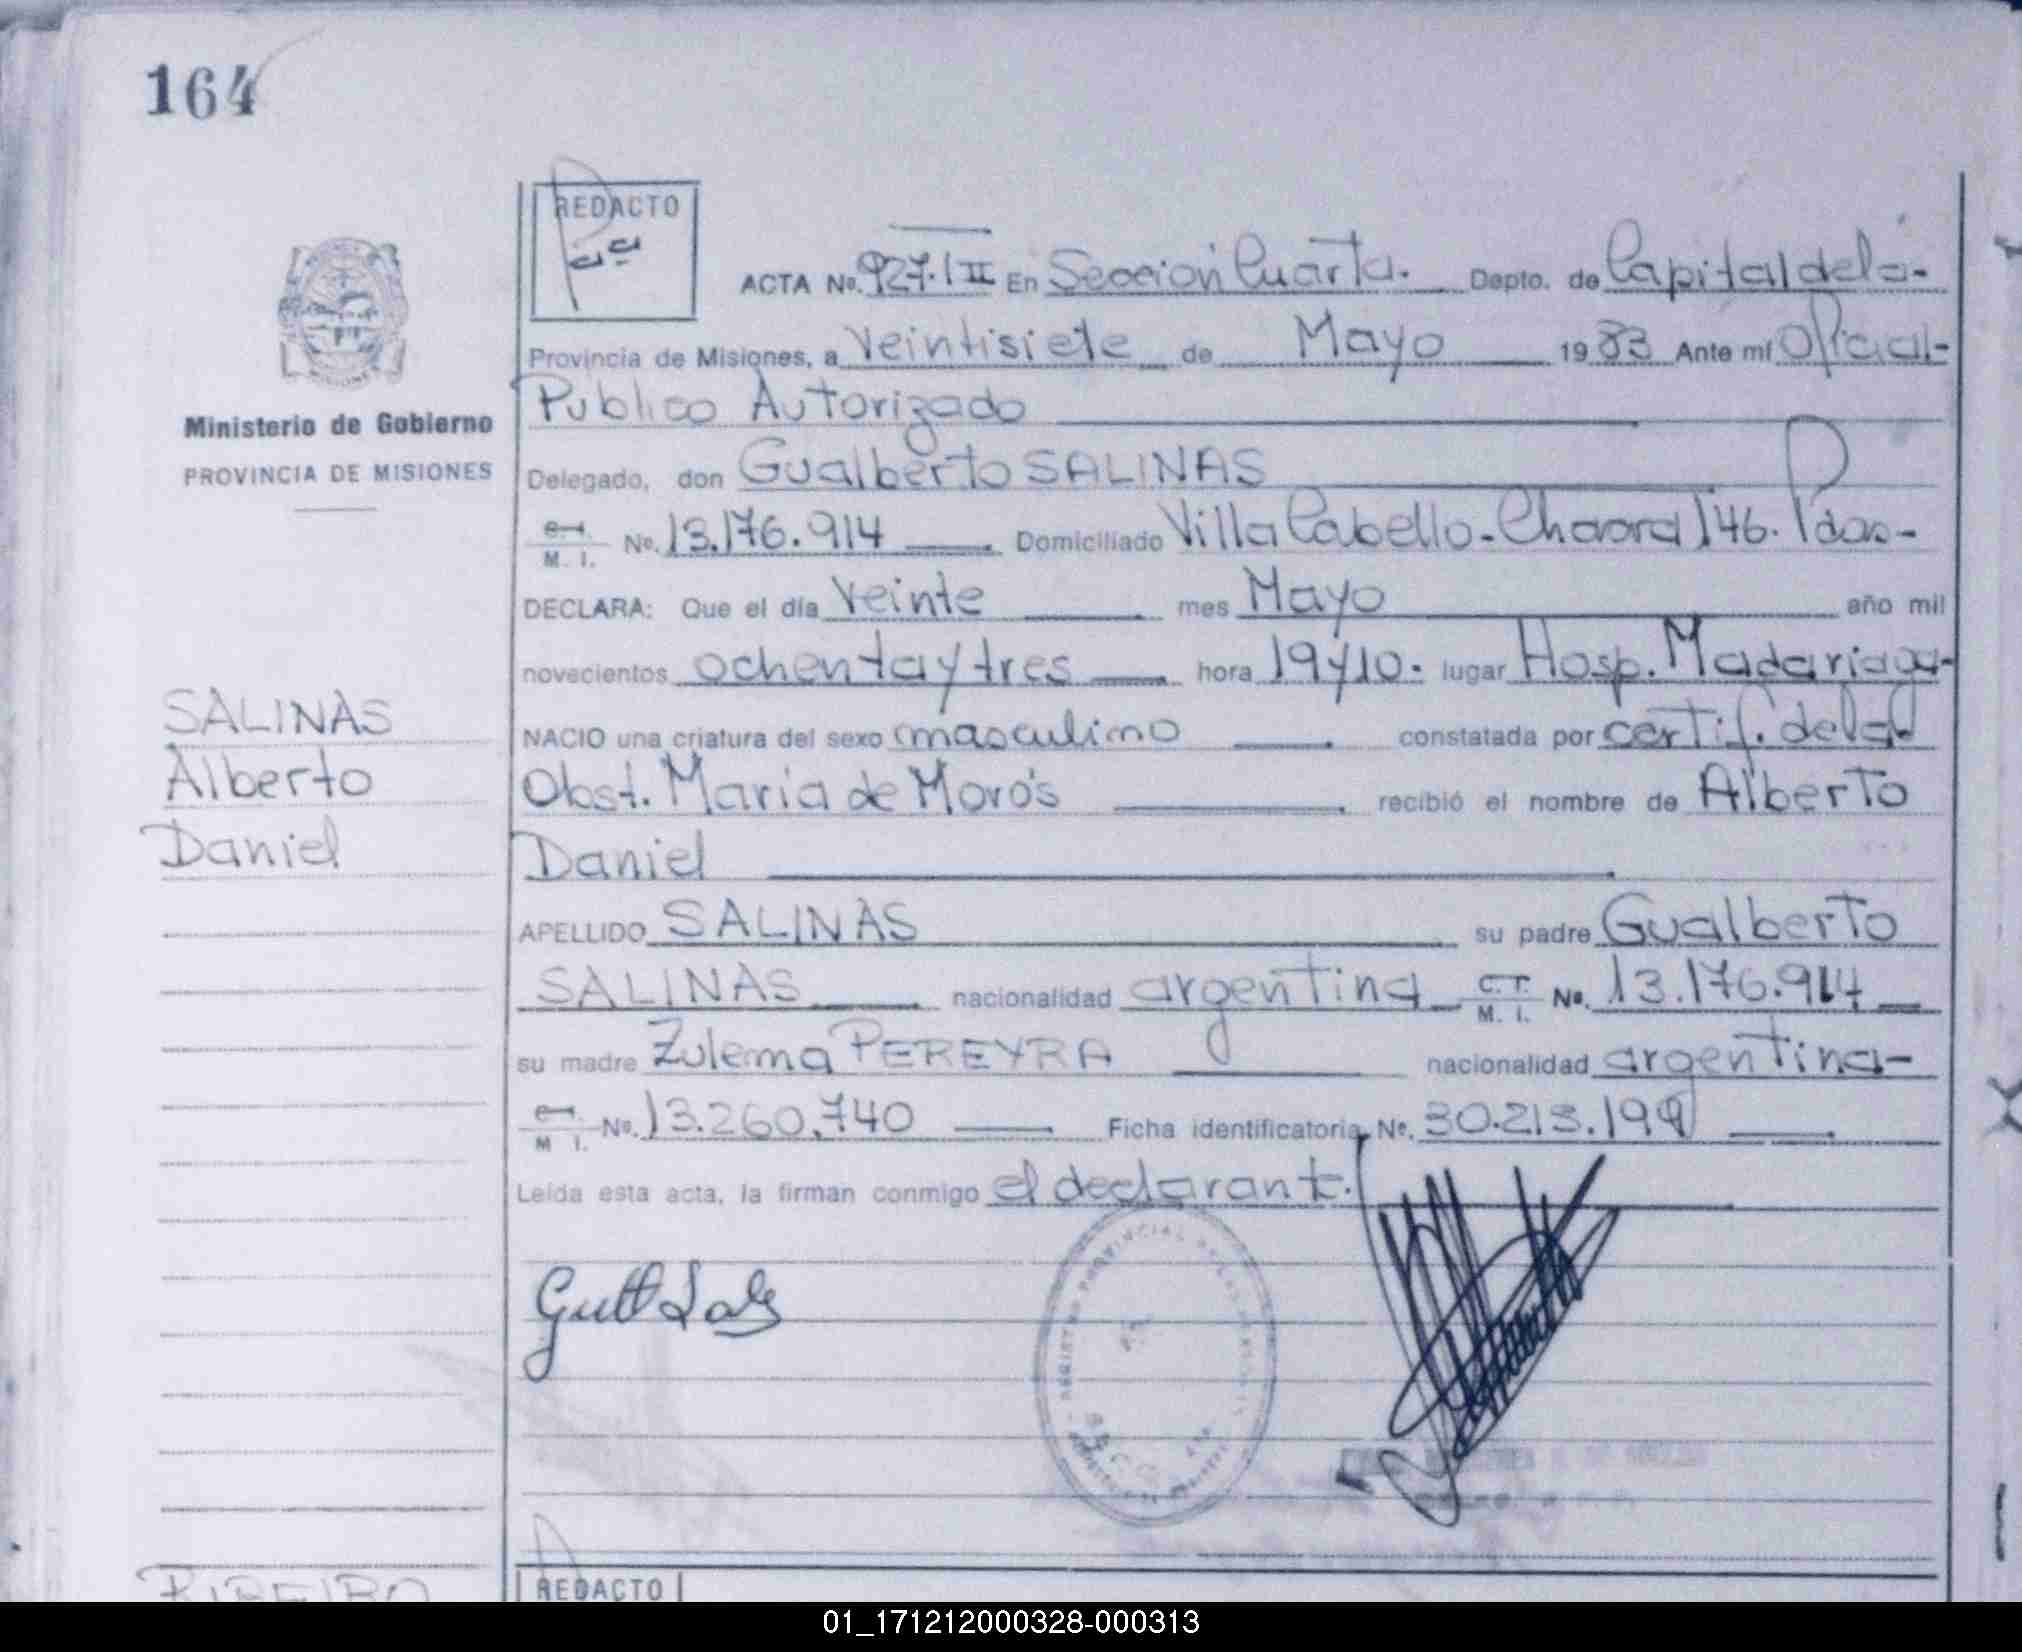 164
REDACTO
ACTA No. 927.I II En Sección Cuarta. Depto. de Capital de la-
Provincia de Misiones, a Veintisiete de Mayo 1983 Ante mí Oficial-
Publico Autorizado
Ministerio de Gobierno
PROVINCIA DE MISIONES
Delegado, don Gualberto SALINAS
M. I. No. 13.176.914 Domiciliado Villa Cabello-Chacra 146. Pdas-
DECLARA: Que el día Veinte mes Mayo año mil
novecientos ochenta y tres hora 19y10. lugar Hosp. Madariaga-
NACIO una criatura del sexo masculino constatada por certif. de la
Obst. Maria de Moro's recibió el nombre de Alberto
Daniel
SALINAS
Alberto
Daniel
APELLIDO SALINAS su padre Gualberto
SALINAS nacionalidad argentina C.I. M. I. No. 13.176.914
su madre Zulema PEREYRA nacionalidad argentina-
M I. No. 13.260.740 Ficha identificatoria No. 30.213.199
Leída esta acta, la firman conmigo el declarante.
REGISTRO PROVINCIAL
RIBEIRO
REDACTO
01_171212000328-000313